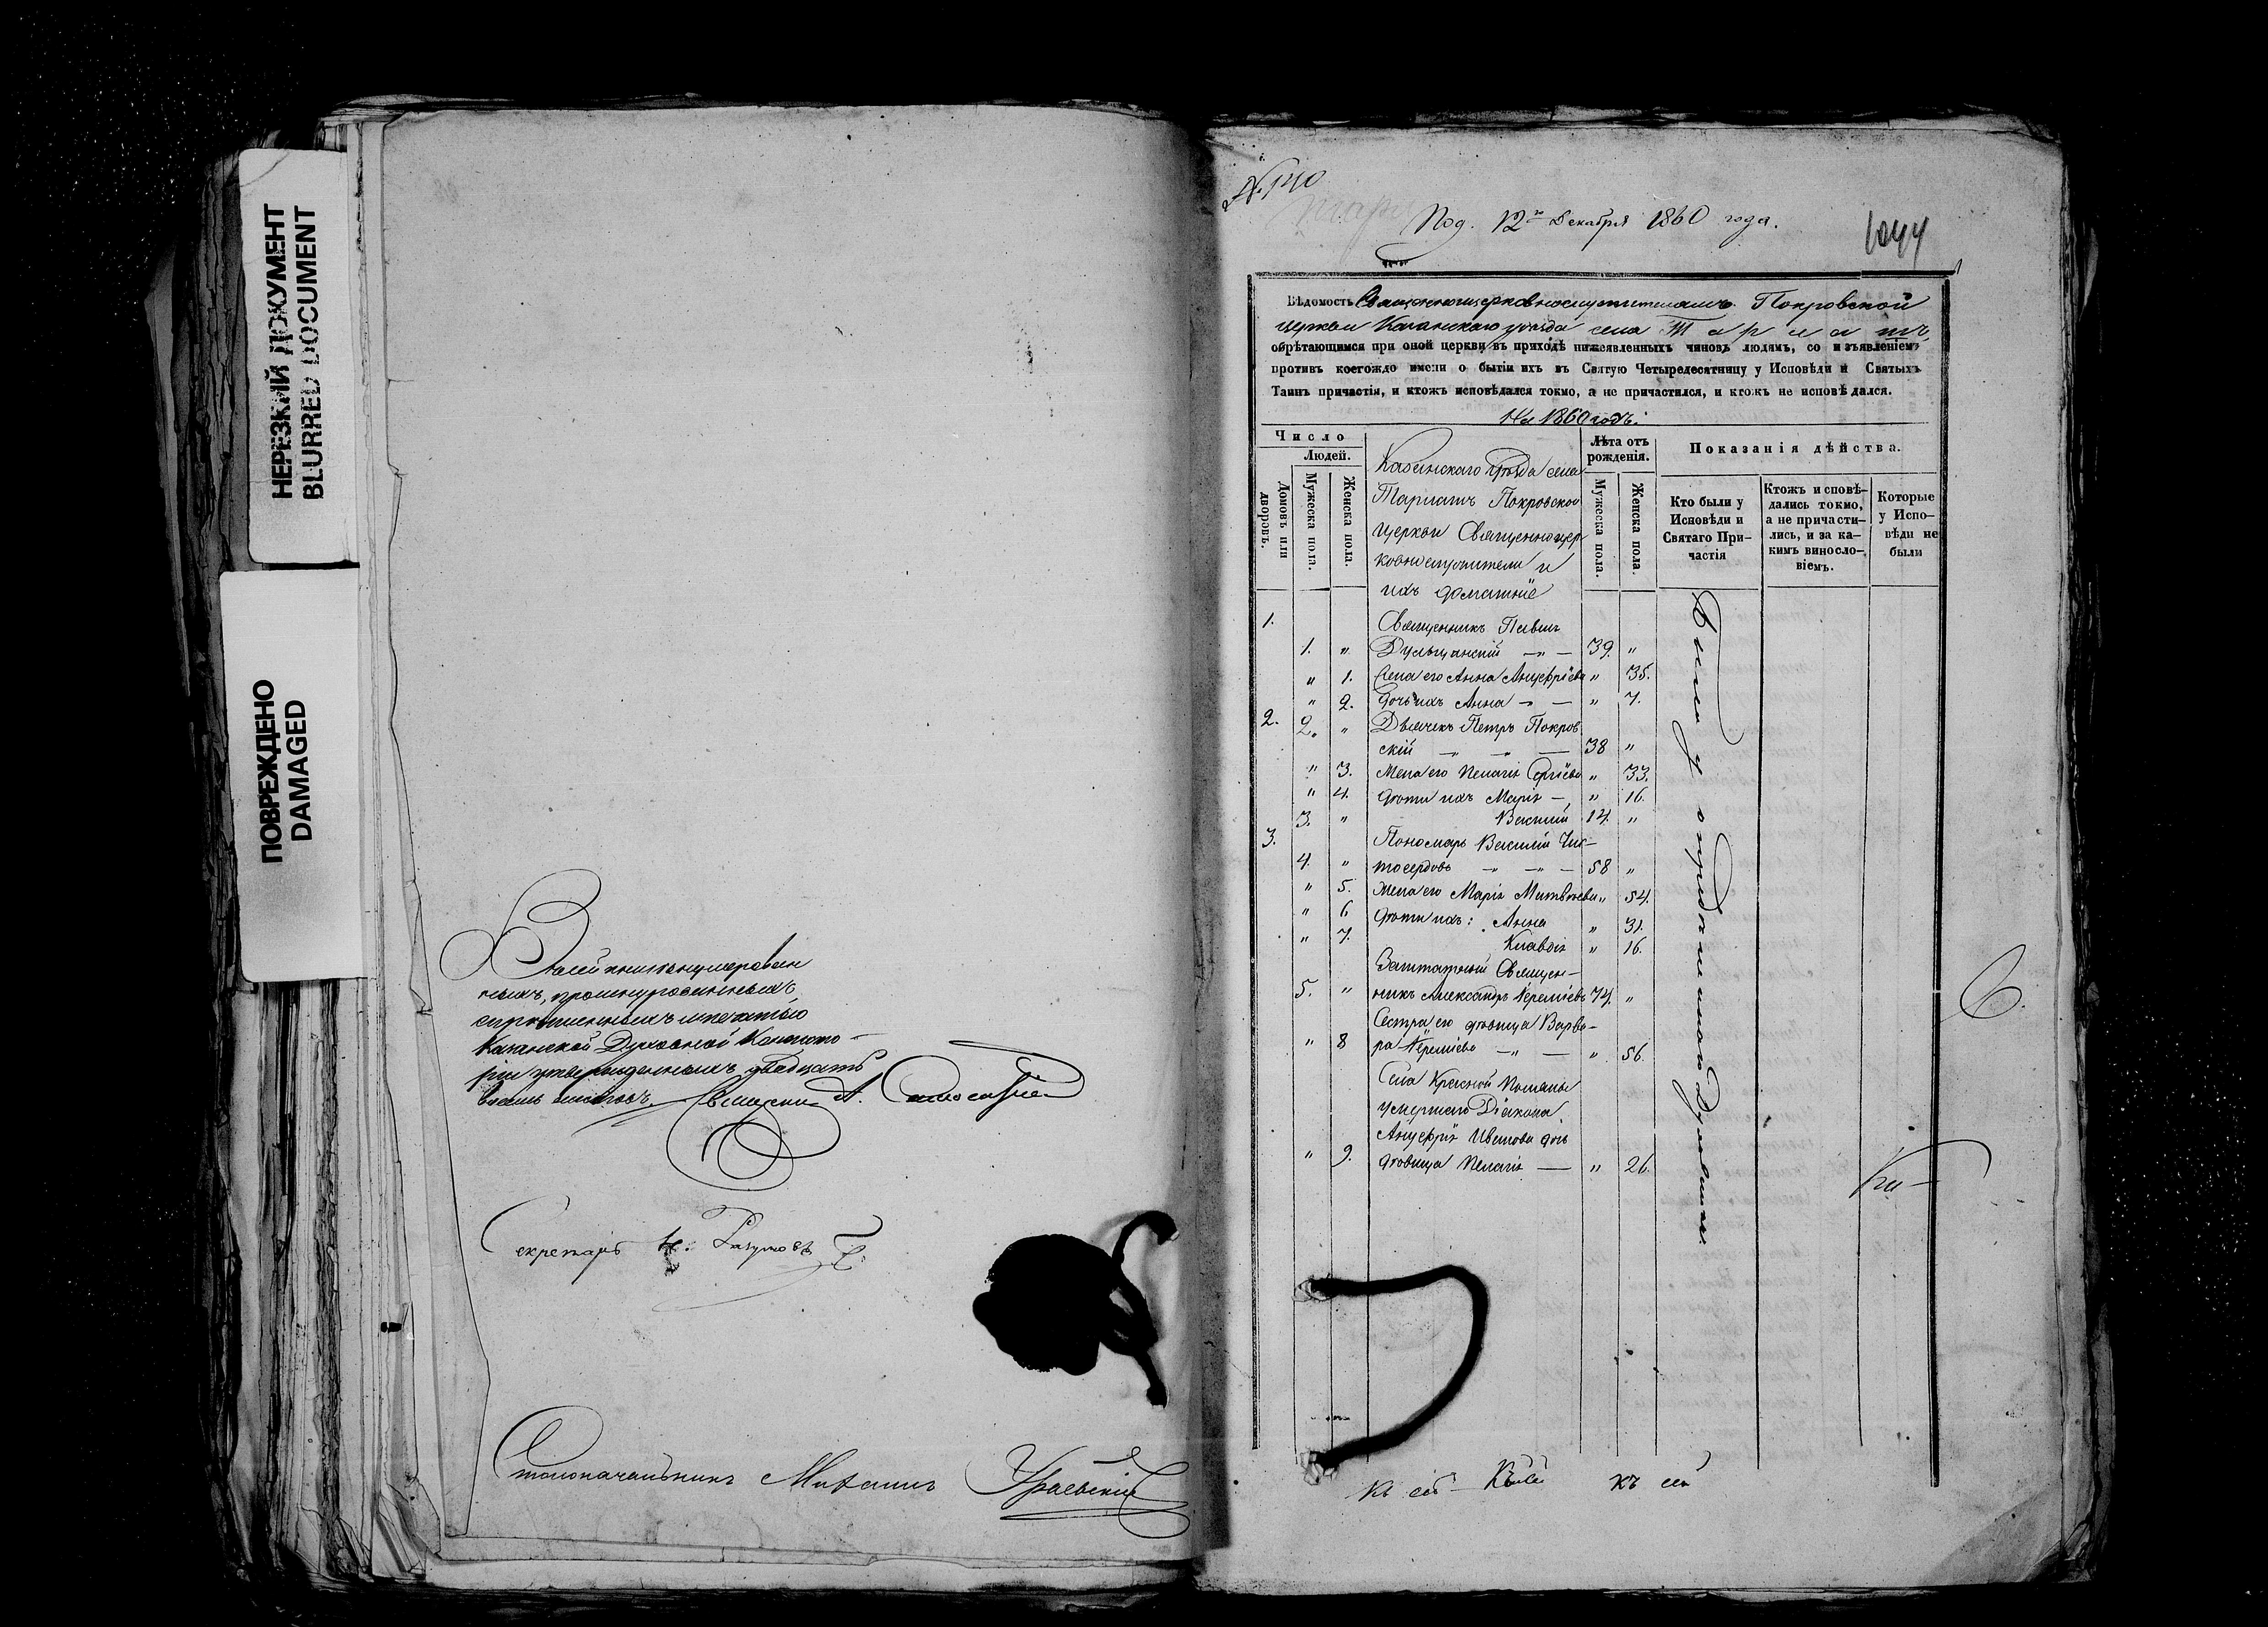 НЕРЕЗКИЙ ДОКУМЕНТ
BLURRED DOCUMENT
ПОВРЕЖДЕНО
DAMAGED
Всей книги нумерован
ныхъ, прошнурованныхъ
скрѣпленныхъ и печатью
Казанской Духовной Консисто-
ріи утвержденныхъ двадцать
восемь листовъ.
Секретарь Н. Разумовъ
Столоначальникъ Михаилъ
№ 140
Под. 12го Декабря 1860 года.
1044
Вѣдомость Священноцерковнослужителямъ Покровской
церкви Казанскаго уѣзда села Тарлатъ
обрѣтающимся при оной церкви въ приходѣ нижеявленныхъ чиновъ людямъ, со изъявленіемъ
противъ коегождо имени о бытіи ихъ въ Святую Четыредесятницу у Исповѣди и Святыхъ
Таинъ причастія, и ктожъ исповѣдался токмо, а не причастился, и ктожъ не исповѣдался.
На 1860 годъ.
Число
Людей.
Домовъ или дворовъ.
Мужеска пола.
Женска пола.
Казанскаго уѣзда села
Тарлатъ Покровской
церкви Священноцер
ковнослужители и
ихъ домашніе
Лѣта отъ рожденія.
Мужеска пола.
Женска пола.
Показанія дѣйства.
Кто были у Исповѣди и Святаго При-частія
Ктожъ исповѣ-дались токмо, а не причасти-лись, и за ка-кимъ винносло-віемъ.
Которые у Испо-вѣди не были
1. Священникъ Павелъ
1. " Дульцанскій — " — 39. "
" 1. Жена его Анна Анцефріева " 35.
" 2. Дочь ихъ Анна " — " 7.
2. 2. " Дьячекъ Петръ Покров
скій — " — " — 38 "
" 3. Жена его Пелагія Сергіева " 33.
" 4. Дѣти ихъ Марія — " 16.
3. " Василій 14. "
3. Пономарь Василій Чис-
4. " тосердовъ — " — " — 58 "
" 5. Жена его Марія Матвѣева " 54.
" 6 Дѣти ихъ: Анна " 31.
" 7. Клавдія " 16.
Заштатный Священ-
5. " никъ Александръ Іереміевъ 74. "
Сестра его дѣвица Варва-
" 8 ра Іереміева — " — " 56.
Села Красной Поляны
умершаго Діакона
Анцефрія Иванова дочь
" 9. дѣвица Пелагія — " 26.
Были у исповѣди
6.
къ сей къ сей къ сей